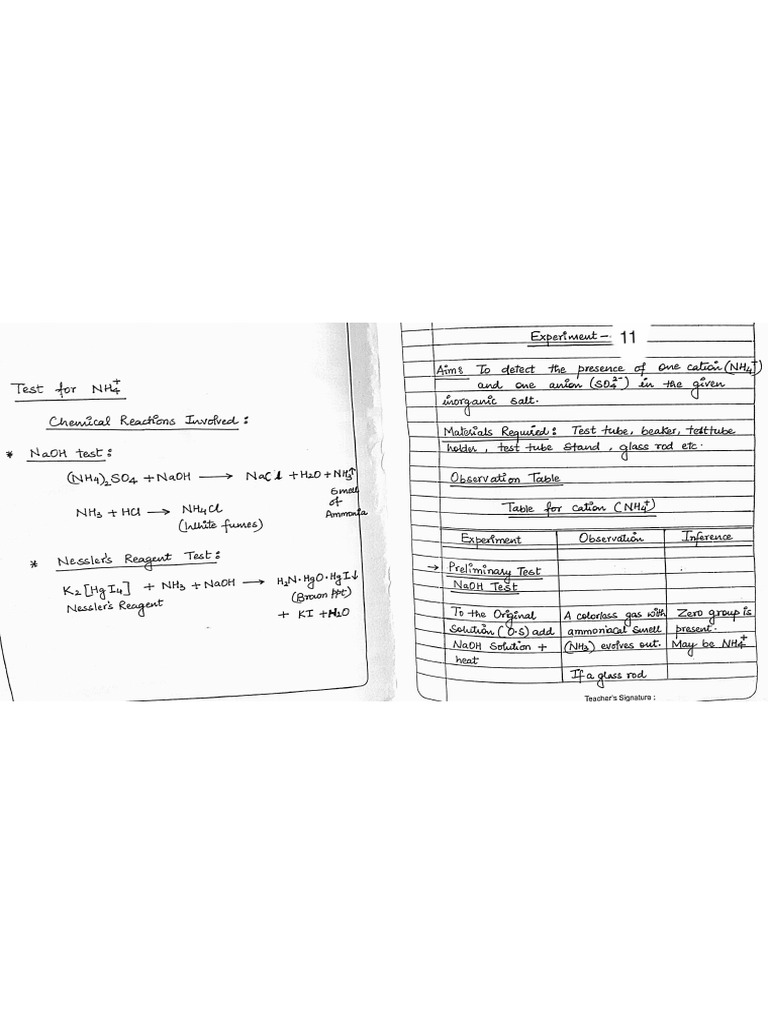 Test for NH4+
Chemical Reactions Involved :
* NaOH test :
(NH4)2SO4 + NaOH → NaCl + H2O + NH3↑
Smell
of
Ammonia
NH3 + HCl → NH4Cl
(White fumes)
* Nessler's Reagent Test :
K2[HgI4] + NH3 + NaOH → H2N·HgO·HgI↓
Nessler's Reagent
(Brown ppt)
+ KI + H2O
Experiment - 11
Aim : To detect the presence of one cation (NH4+)
and one anion (SO4 2-) in the given
inorganic salt.
Materials Required : Test tube, beaker, testtube
holder, test tube stand, glass rod etc.
Observation Table
Table for cation (NH4+)
Experiment Observation Inference
→ Preliminary Test
NaOH Test
To the Original A colorless gas with Zero group is
Solution (O.S) add ammoniacal smell present.
NaOH Solution + (NH3) evolves out. May be NH4+
heat
If a glass rod
Teacher's Signature :